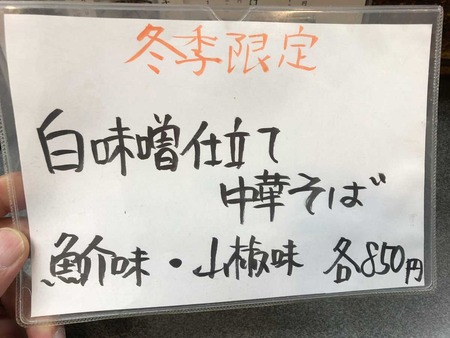 冬季限定
白味噌仕立て
中華そば
魚介味・山椒味 各850円